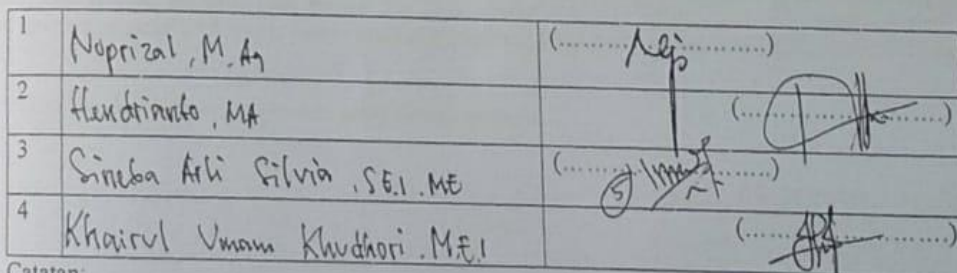 1 Noprizal, M.Ag (....................)
2 Hendrianto, MA (....................)
3 Sineba Arli Silvia, SE.I, ME (....................)
4 Khairul Umam Khudhori, M.E.I (....................)
Catatan: